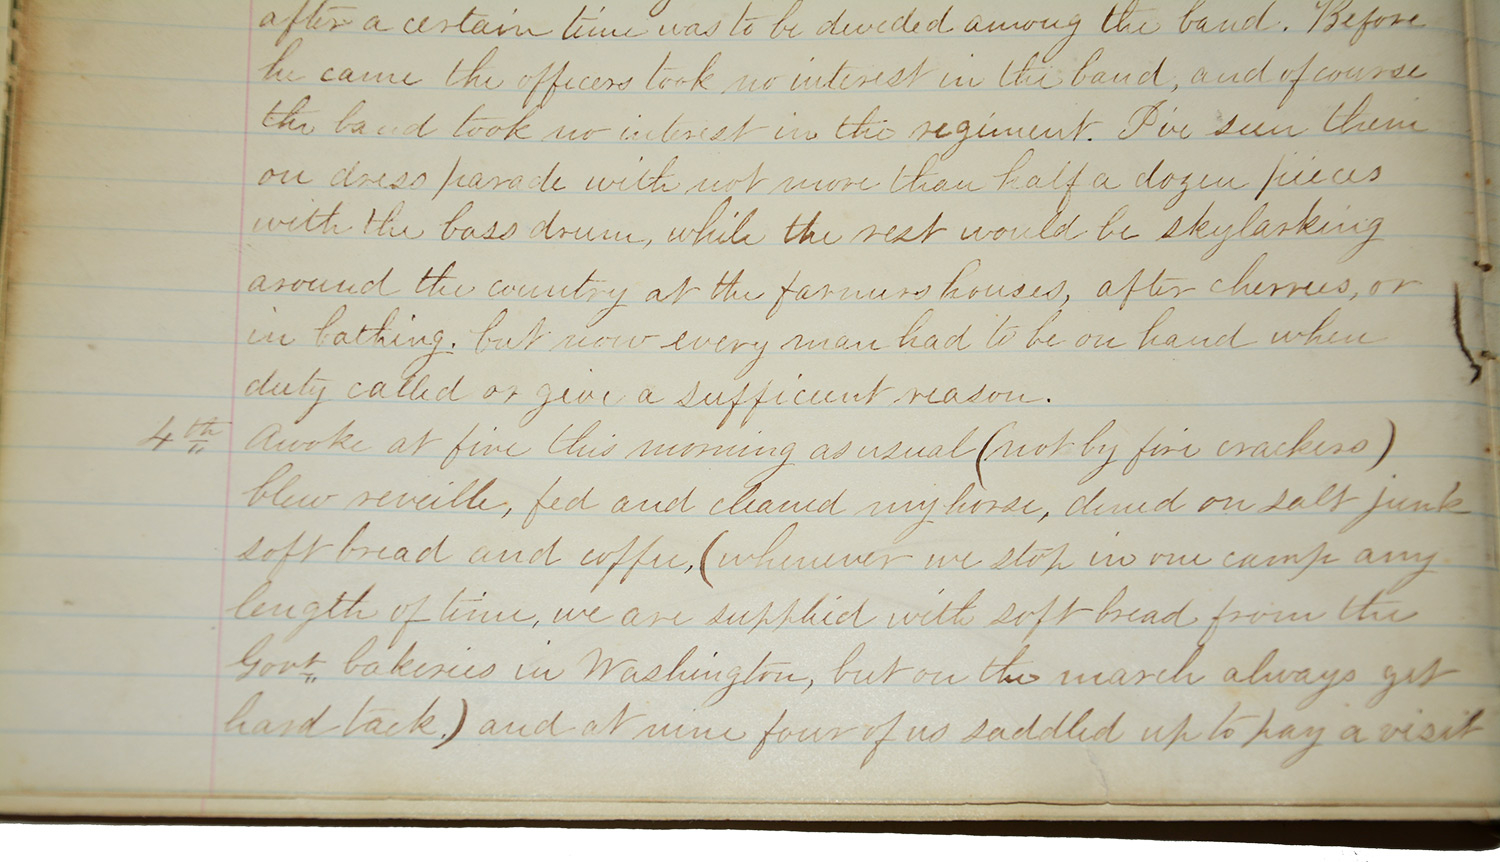 after a certain time was to be devided among the band. Before
he came the officers took no interest in the band, and of course
the band took no interest in the regiment. I've seen them
on dress parade with not more than half a dozen pieces
with the bass drum, while the rest would be skylarking
around the country at the farmers houses, after cherries, or
in bathing. but now every man had to be on hand when
duty called or give a sufficient reason.
4th Awoke at five this morning as usual (not by fire crackers)
blew reveille, fed and cleaned my horse, dined on salt junk
soft bread and coffee, (whenever we stop in one camp any
length of time, we are supplied with soft bread from the
Govt bakeries in Washington, but on the march always get
hard tack.) and at nine four of us saddled up to pay a visit